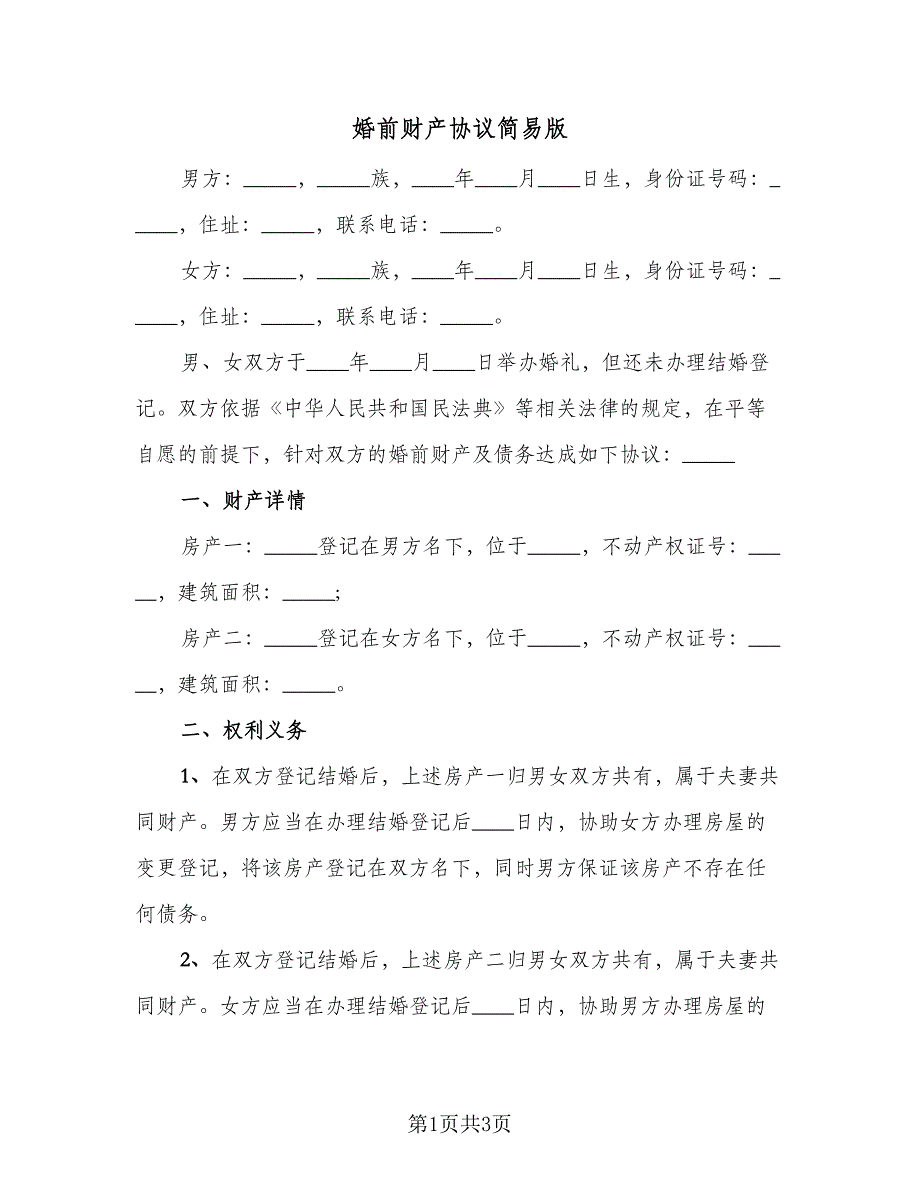 婚前财产协议简易版
男方：_____，_____族，____年____月____日生，身份证号码：_
____，住址：_____，联系电话：_____。
女方：_____，_____族，____年____月____日生，身份证号码：_
____，住址：_____，联系电话：_____。
男、女双方于____年____月____日举办婚礼，但还未办理结婚登
记。双方依据《中华人民共和国民法典》等相关法律的规定，在平等
自愿的前提下，针对双方的婚前财产及债务达成如下协议：_____
一、财产详情
房产一：_____登记在男方名下，位于_____，不动产权证号：___
__，建筑面积：_____;
房产二：_____登记在女方名下，位于_____，不动产权证号：___
__，建筑面积：_____。
二、权利义务
1、在双方登记结婚后，上述房产一归男女双方共有，属于夫妻共
同财产。男方应当在办理结婚登记后____日内，协助女方办理房屋的
变更登记，将该房产登记在双方名下，同时男方保证该房产不存在任
何债务。
2、在双方登记结婚后，上述房产二归男女双方共有，属于夫妻共
同财产。女方应当在办理结婚登记后____日内，协助男方办理房屋的
第1页共3页